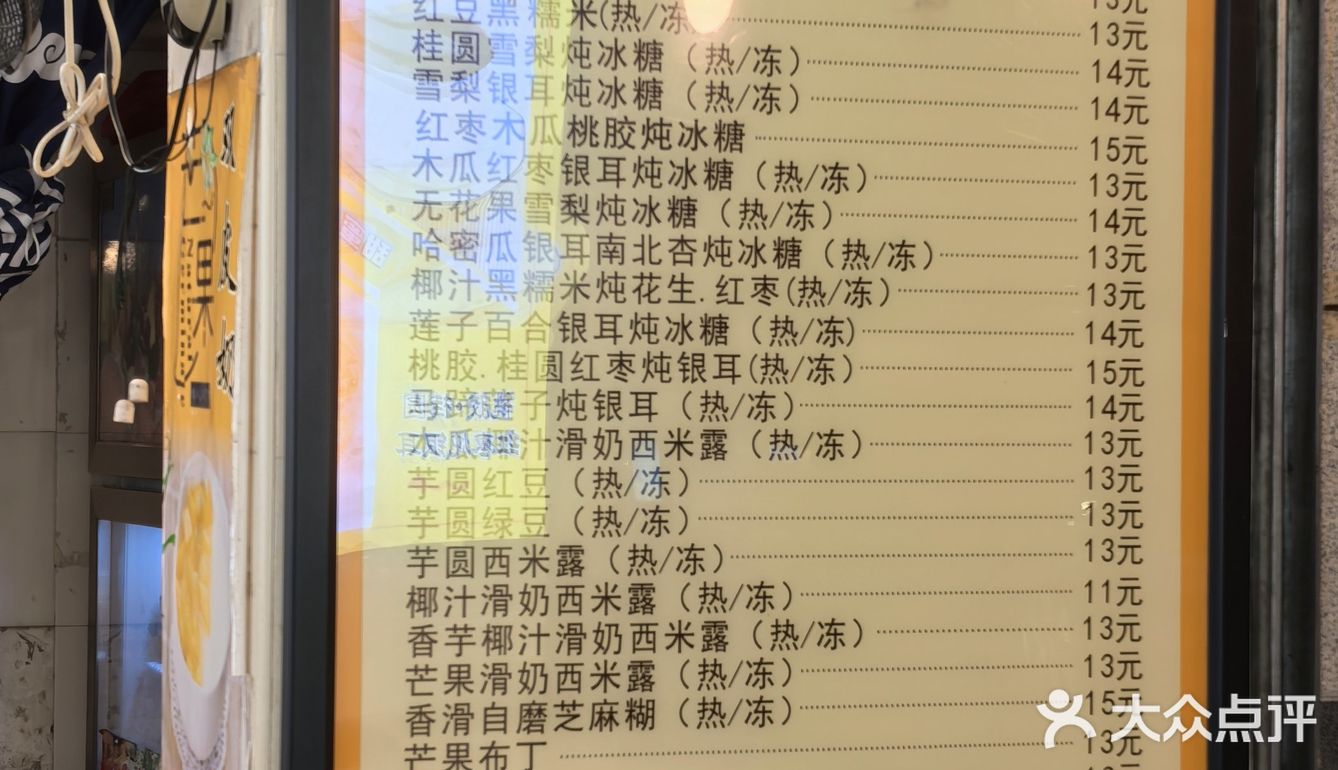 13元
红豆黑糯米(热/冻) 13元
桂圆雪梨炖冰糖（热/冻） 14元
雪梨银耳炖冰糖（热/冻） 14元
红枣木瓜桃胶炖冰糖 15元
木瓜红枣银耳炖冰糖（热/冻） 13元
无花果雪梨炖冰糖（热/冻） 14元
哈密瓜银耳南北杏炖冰糖（热/冻） 13元
椰汁黑糯米炖花生.红枣(热/冻） 13元
莲子百合银耳炖冰糖（热/冻) 14元
桃胶.桂圆红枣炖银耳(热/冻） 15元
子炖银耳（热/冻） 14元
木瓜椰汁滑奶西米露（热/冻） 13元
芋圆红豆（热/冻） 13元
芋圆绿豆（热/冻） 13元
芋圆西米露（热/冻） 13元
椰汁滑奶西米露（热/冻） 11元
香芋椰汁滑奶西米露（热/冻） 13元
芒果滑奶西米露（热/冻） 13元
香滑自磨芝麻糊（热/冻） 15元
芒果布丁 13元
双皮奶
大众点评